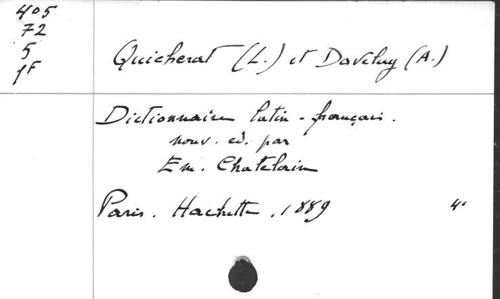 405
72
5
1F
Quicherat (L.) et Daveluy (A.)
Dictionnaire latin-français.
nouv. ed. par
Em. Chatelain
Paris. Hachette, 1889 4°